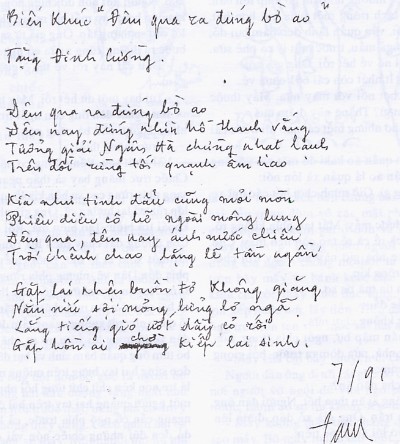 Biến Khúc "Đêm qua ra đứng bờ ao"
Tặng Đinh Cường.
Đêm qua ra đứng bờ ao
Đêm nay đứng nhìn hồ thanh vắng
Tưởng giải Ngân Hà chừng nhạt lạnh
Trên đồi rừng tối quạnh âm hao
Kìa như tinh đẩu cũng mỏi mòn
Phiêu diêu cô lẽ ngoài mông lung
Đêm qua, đêm nay ánh nước chiếu
Trời chênh chao lặng lẽ tần ngần
Gặp lại nhện buồn tơ không giăng
Năm níu sợi mỏng hửng lơ ngã
Lắng tiếng gió vọt đầy cỏ rối
Gặp hồn ai chờ kiếp lai sinh.
7/91